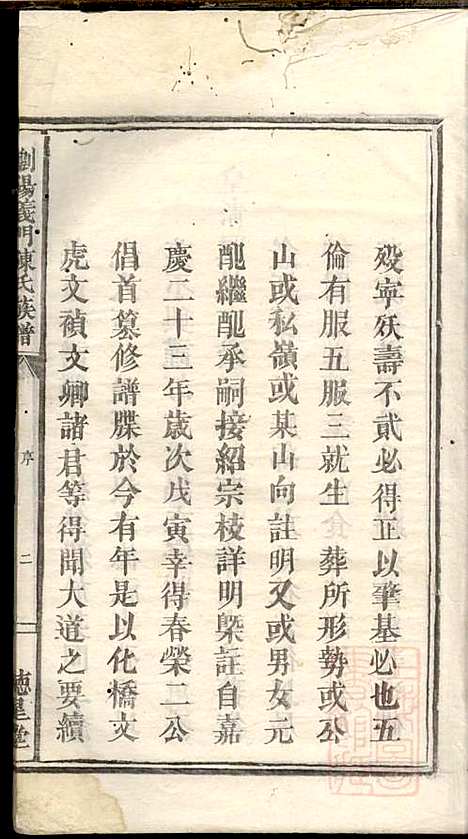 殁寜殀壽不貳必得正以肇基必也五
倫有服五服三就生　葬所形勢或公
山或私嶺或某山向註明又或男女元
配繼配承嗣接紹宗枝詳明槩註自嘉
慶二十三年歲次戊寅幸得春榮二公
倡首纂修譜牒於今有年是以化橋文
虎文禎文卿諸君等得聞大道之要續
劉陽義門陳氏族譜
序
二
德星堂